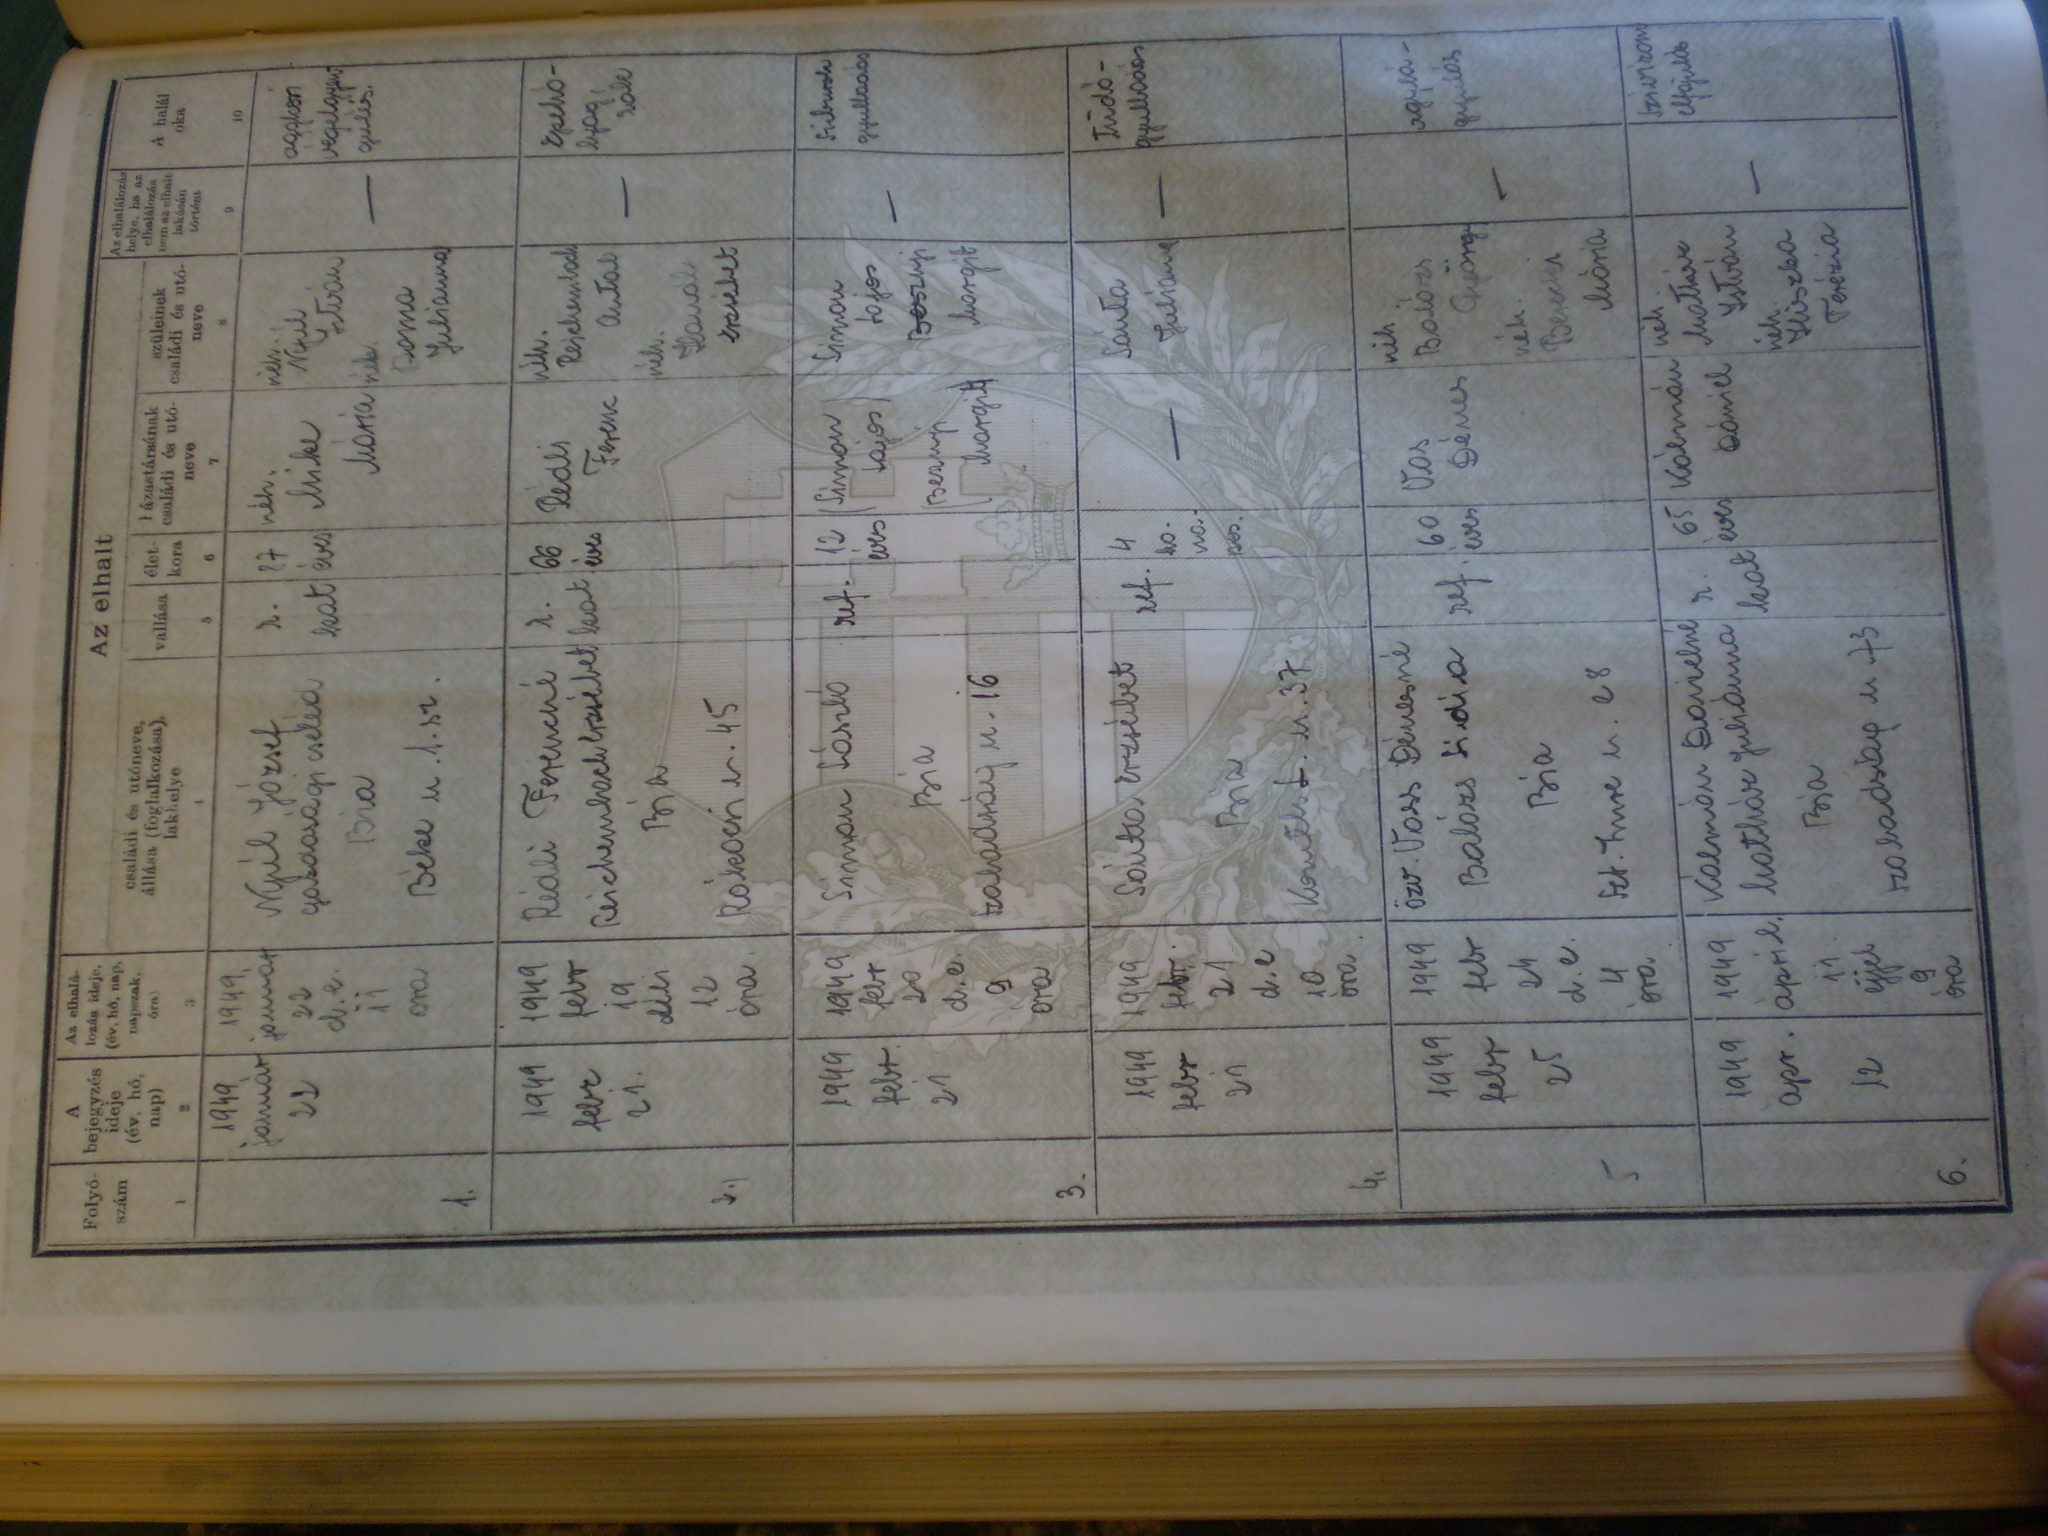 Az elhalt
Folyó-
szám
A
bejegyzés
ideje
(év, hó,
nap)
Az elhalá-
lozás ideje,
(év, hó, nap,
napszak,
óra)
családi és utóneve,
állása (foglalkozása),
lakhelye
vallása
élet-
kora
házastársának
családi és utó-
neve
szüleinek
családi és utó-
neve
Az elhalálozás
helye, ha az
elhalálozás
nem az elhalt
lakásán
történt
A halál
oka
1
2
3
4
5
6
7
8
9
10
1.
1949
január
22
1949
január
22
d.e.
11
óra
Nyúl József
gazdasági cseléd
Bia
Béke u. 1. sz.
r.
kat
éves
néh.
Mike
Mária
néh.
Nyúl
István
néh.
Juliánna
—
2.
1949
febr
21.
1949
febr
19
déli
12
óra.
Rédli Ferencné
Reichembach Erzsébet
Bia
Rákoczi u. 45
r.
kat
66
éves
Rédli
Ferenc
néh.
Reichembach
Antal
néh.
Erzsébet
—
3.
1949
febr.
21
1949
febr
20
d.e.
9
óra
Simon László
Bia
Szabadság u. 16
ref.
12
éves
(Simon
Lajos)
(Besznyi
Margit)
Simon
Lajos
Besznyi
Margit
—
gyulladás
4.
1949
febr
21
1949
febr.
21
d.e
10
óra.
Sánta Erzsébet
Bia
u. 37
ref.
4
hó.
na-
pos.
—
Sánta
Juliánna
—
Tüdő-
gyulladás
5
1949
febr
25
1949
febr
24
d.e.
4
óra.
özv. Vass Dénesné
Balázs Lidia
Bia
Szt. Imre u. 28
ref.
60
éves
Vas
Dénes
néh
Balázs
György
néh.
Mária
—
6.
1949
ápr.
12
1949
április.
11
éjjel
9
óra
Kálmán Dánielné
Juliánna
Bia
Szabadság u. 73
r.
kat
65
éves
Kálmán
Dániel
néh
István
néh.
Terézia
—